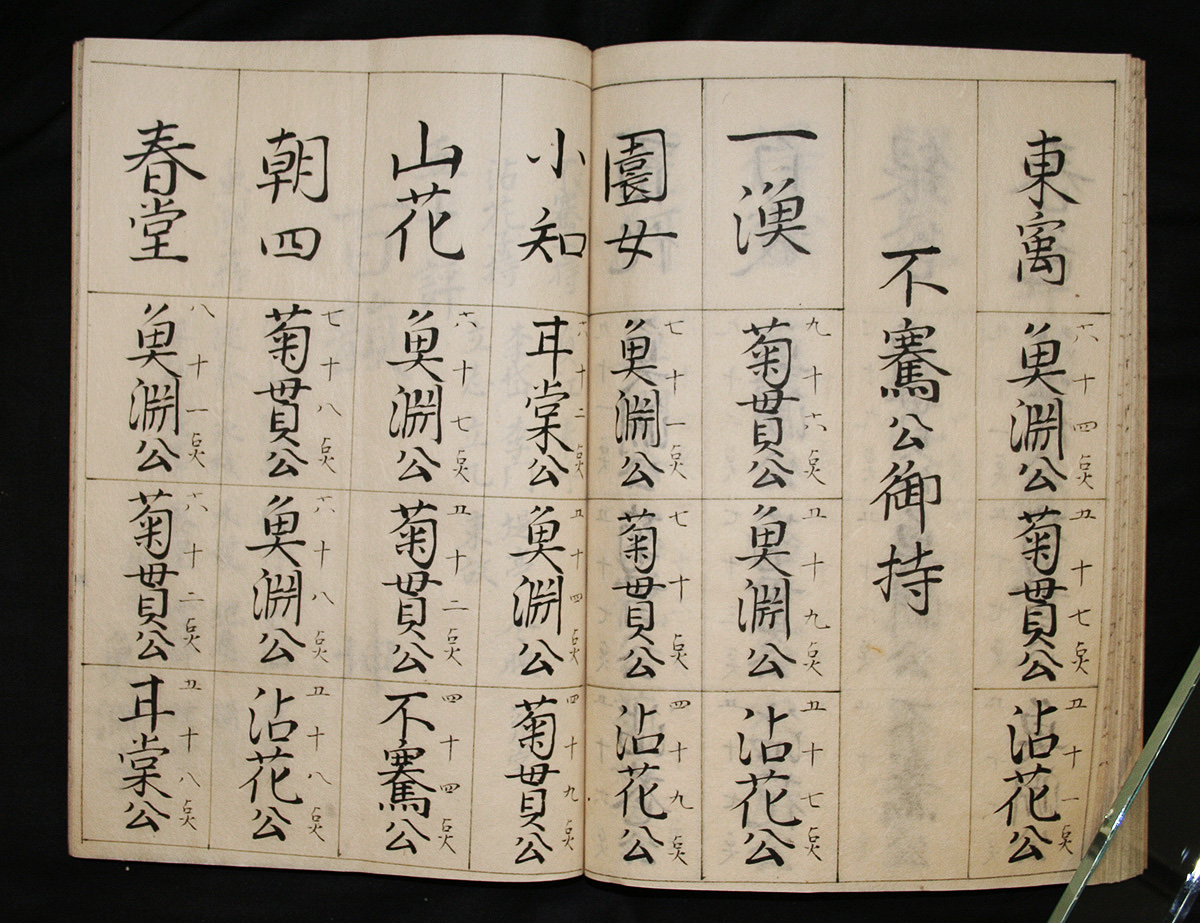 東寓
六十四点
魚淵公
五十七点
菊貫公
五十一点
沾花公
不騫公御持
一漁
九十六点
菊貫公
五十九点
魚淵公
五十七点
沾花公
園女
七十一点
魚淵公
七十点
菊貫公
四十九点
沾花公
小知
六十二点
甘棠公
五十四点
魚淵公
四十九点
菊貫公
山花
六十七点
魚淵公
五十二点
菊貫公
四十四点
不騫公
朝四
七十八点
菊貫公
六十八点
魚淵公
五十八点
沾花公
春堂
八十一点
魚淵公
六十二点
菊貫公
五十八点
甘棠公